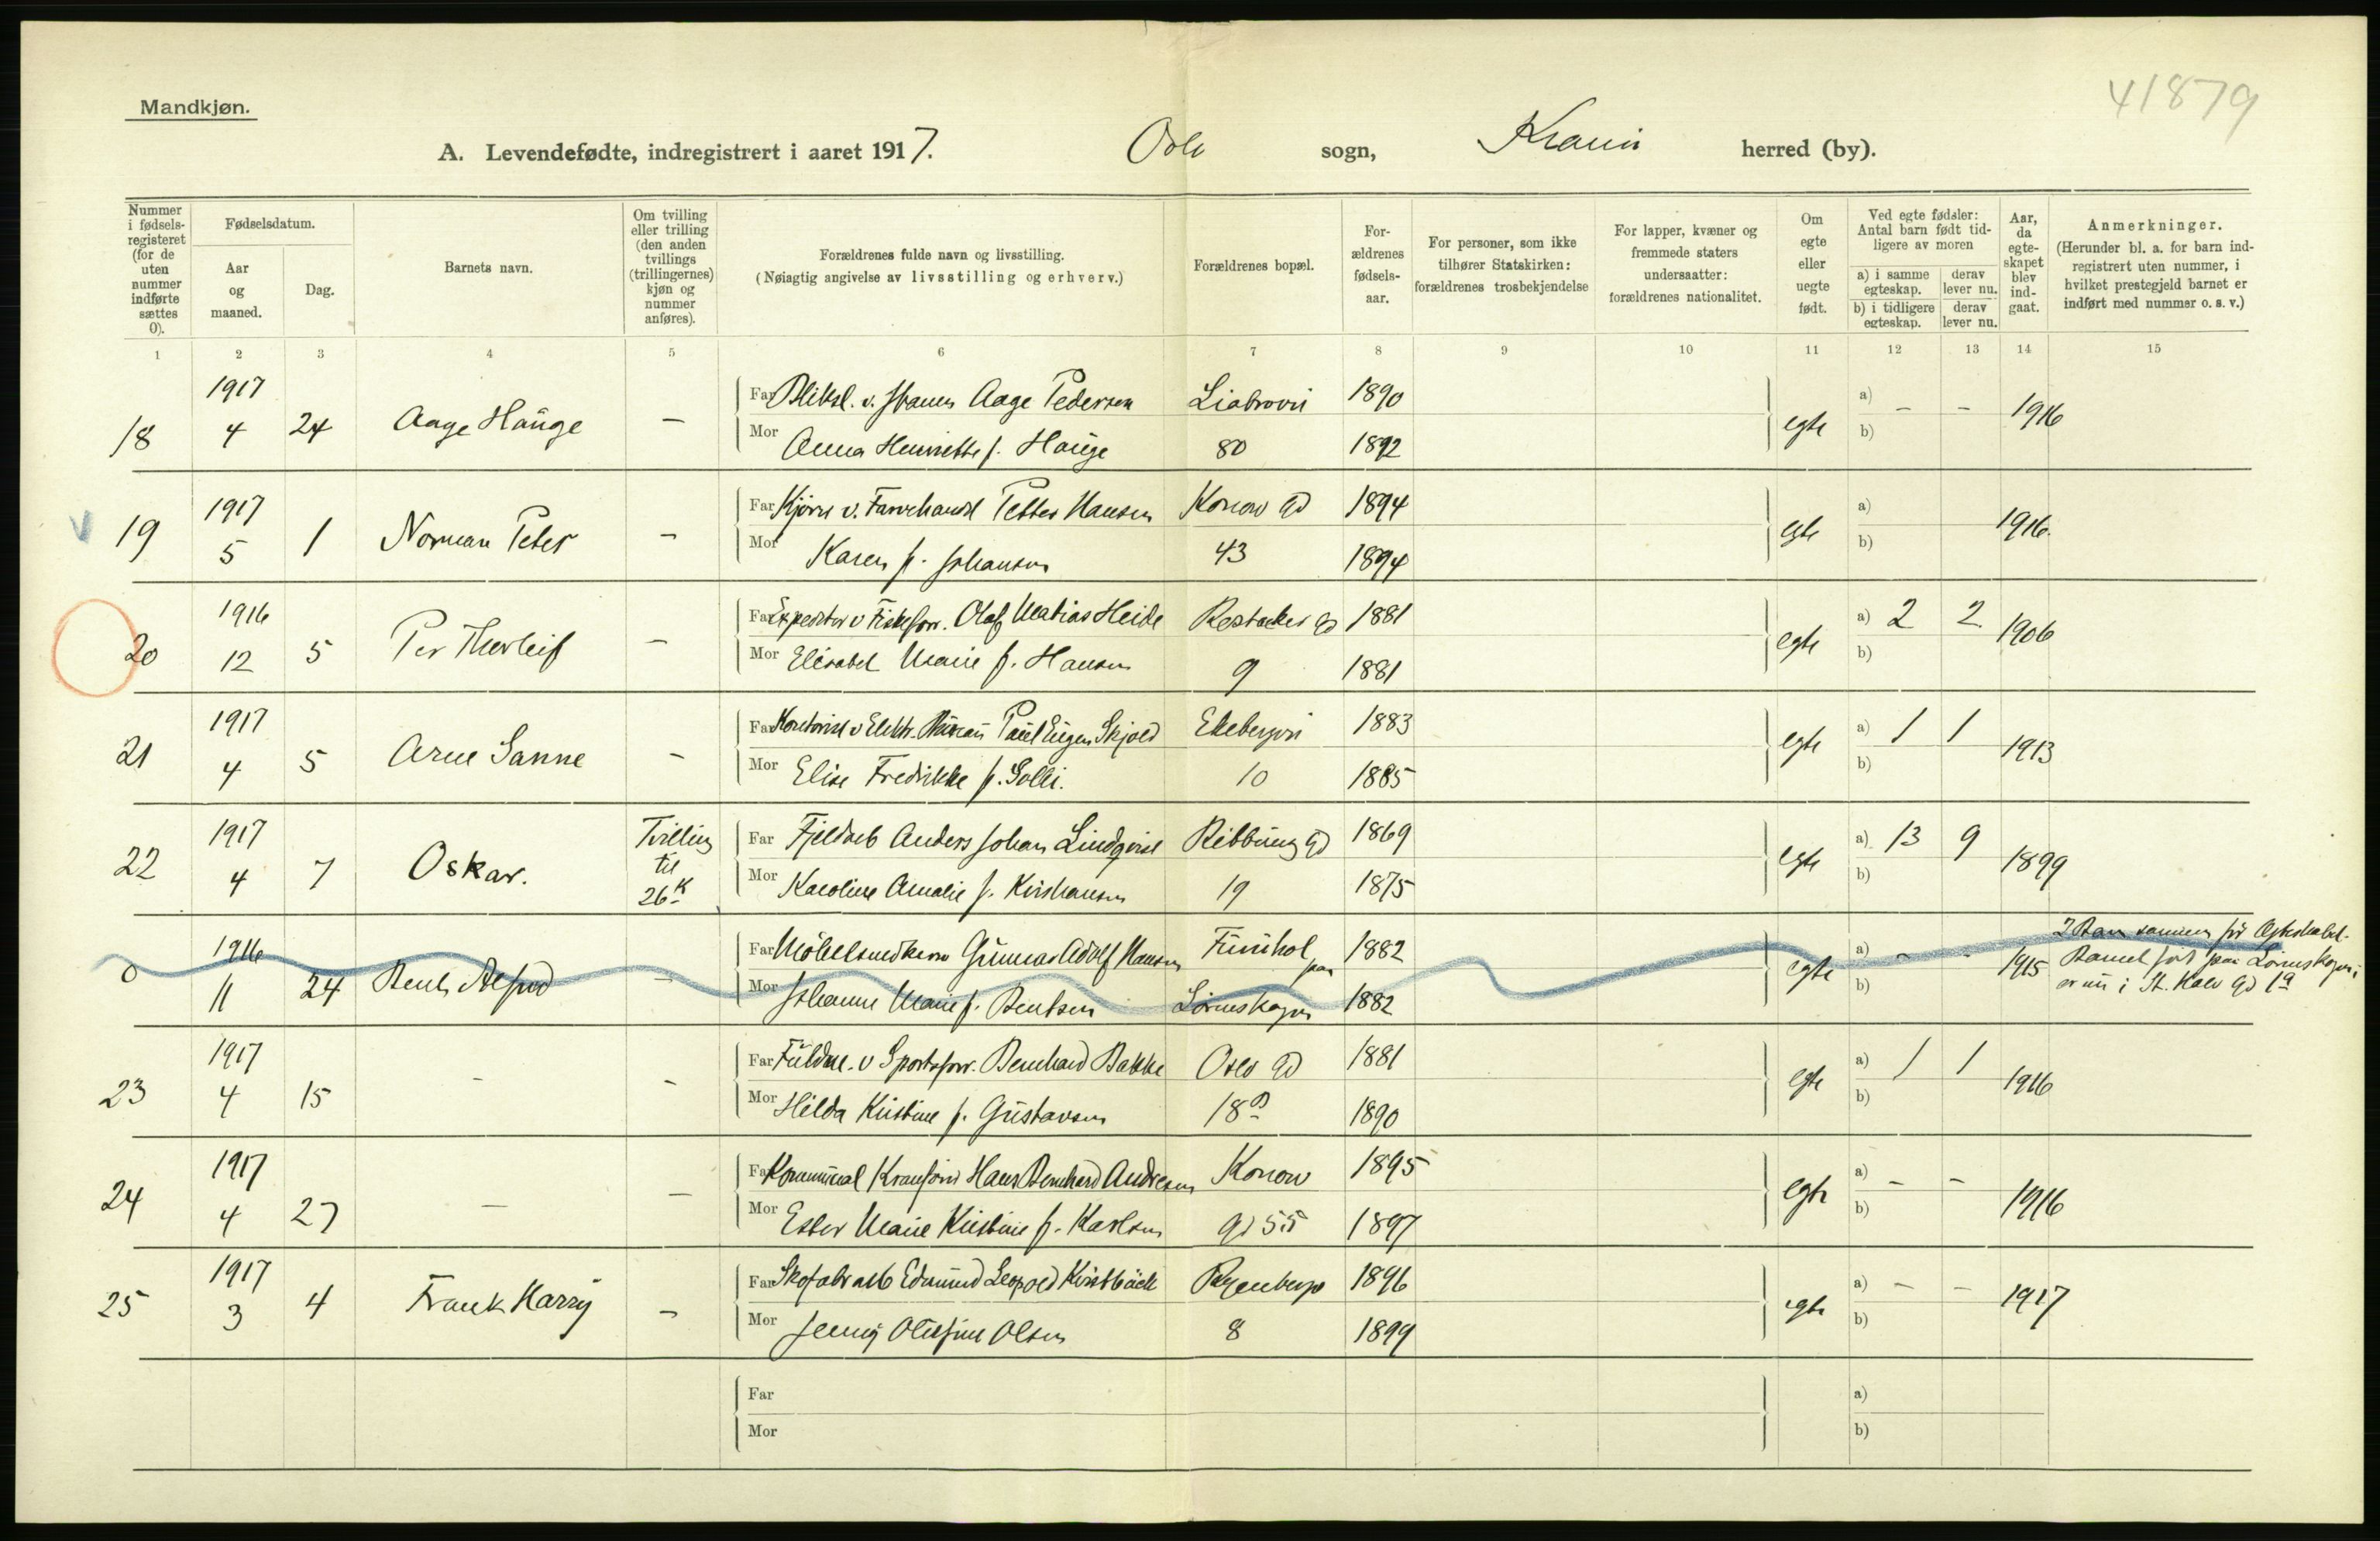 41879
Mandkjøn.
A. Levendefødte, indregistrert i aaret 1917. Oslo sogn, Kra.nia herred (by).
Nummer i fødsels-registeret (for de uten nummer indførte sættes 0).
Fødselsdatum.
Aar og maaned.
Dag.
Barnets navn.
Om tvilling eller trilling (den anden tvillings (trillingernes) kjøn og nummer anføres).
Forældrenes fulde navn og livsstilling.
(Nøiagtig angivelse av livsstilling og erhverv.)
Forældrenes bopæl.
For-ældrenes fødsels-aar.
For personer, som ikke tilhører Statskirken: forældrenes trosbekjendelse
For lapper, kvæner og fremmede staters undersaatter: forældrenes nationalitet.
Om egte eller uegte født.
Ved egte fødsler: Antal barn født tid-ligere av moren
a) i samme egteskap.
derav lever nu.
b) i tidligere egteskap.
derav lever nu.
Aar, da egte-skapet blev ind-gaat.
Anmerkninger.
(Herunder bl. a. for barn ind-registrert uten nummer, i hvilket prestegjeld barnet er indført med nummer o. s. v.)
1 2 3 4 5 6 7 8 9 10 11 12 13 14 15
18 1917 4 24 Aage Hauge —
Far Bliksl. v. Aage Pedersen Liabrovei 1890
Mor Anna Henriette f. Hauge 80 1892
egte a) - - b) 1916
19 1917 5 1 Norman Peter -
Far Kjører v. Farvehandl Petter Hansen Konow gd 1894
Mor Karen f. Johansen 43 1894
egte a) b) 1916.
20 1916 12 5 Per Thorleif -
Far Expeditør v Fiskeforr. Olaf Matias Heide gd 1881
Mor Elisabet Marie f. Hansen 9 1881
egte a) 2 2 b) 1906
21 1917 4 5 Arne Sanne -
Far Kontorist v Elektr. Paul Eugen Skjold Ekebergvei 1883
Mor Elise Fredrikke f. Solli. 10 1885
egte a) 1 1 b) 1913
22 1917 4 7 Oskar. Tvilling til 26 K
Far Fjeldarb Anders Johan Lindqvist Ribbung gd 1869
Mor Karoline Amalie f. Kristiansen 19 1875
egte a) 13 9 b) 1899
0 1916 11 24 Bent Alfred -
Far Møbelsnedkern Gunnar Adolf Hansen Furuhol paa 1882
Mor Johanne Marie f. Bentsen Lørenskogen 1882
egte a) - - b) 1915
2 Barn sammen før Ægteskabet.
Barnet født paa Lørenskogen i
er nu i St. Halv gd 19
23 1917 4 15 - -
Far Fuldm. v Sportsforr. Bernhard Bakke Oslo gd 1881
Mor Hilda Kristine f. Gustavsen 18 B 1890
egte a) 1 1 b) 1916
24 1917 4 27 — -
Far Kommunal Kranfører Hans Bernhard Andresen Konow 1895
Mor Ester Marie Kristine f. Karlsen gd 55 1897
egte a) - - b) 1916
25 1917 3 4 Frank Harry -
Far Skofabr arb Edmund Leopold Ryenberge 1896
Mor Jenny Olufine Olsen 8 1899
egte a) - - b) 1917
Far a)
Mor b)